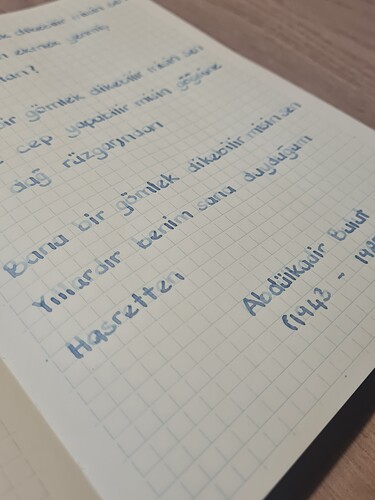 dikebilir misin sen
ekmek
bir gömlek dikebilir misin sen
cep yapabilir misin göğsüne
dağ rüzgarından
Bana bir gömlek dikebilir misin sen
Yıllardır benim sana duyduğum
Hasretten
Abdülkadir Bulut
(1943 -